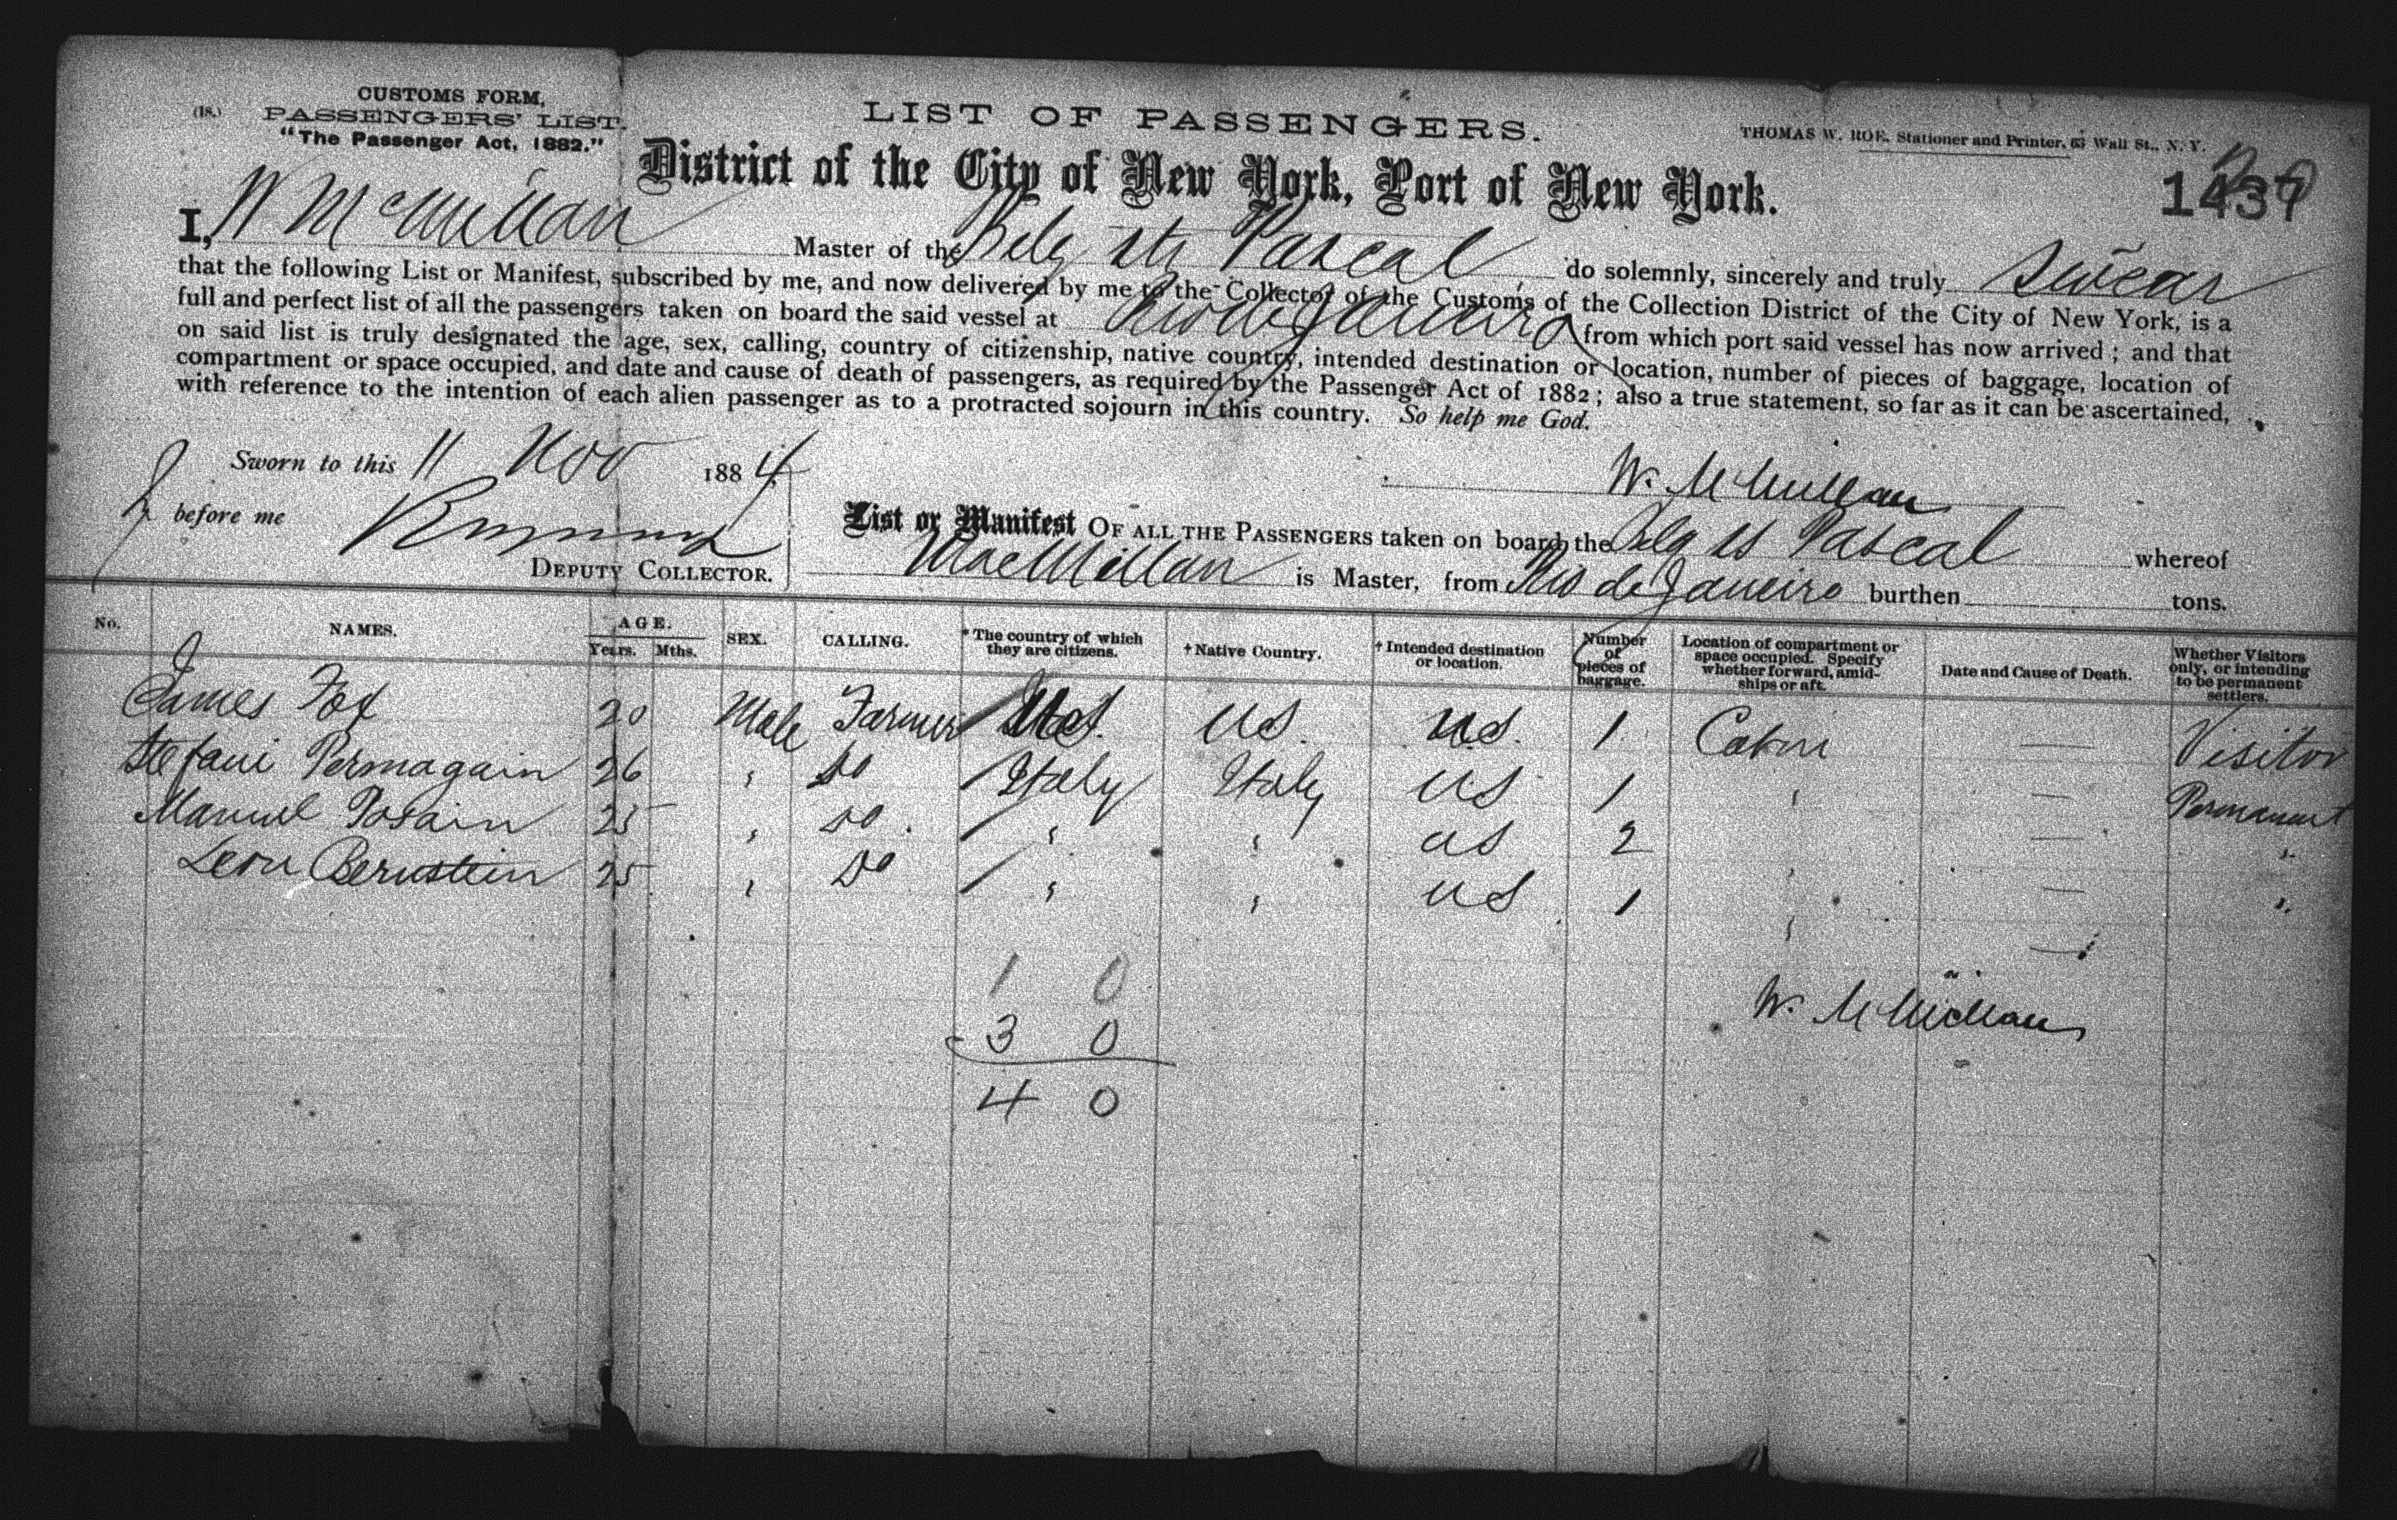 CUSTOMS FORM,
(18.) PASSENGERS' LIST.
"The Passenger Act, 1882."
LIST OF PASSENGERS.
THOMAS W. ROE, Stationer and Printer, 63 Wall St., N. Y.
District of the City of New York, Port of New York.
1437
I, W McMillan Master of the Belg Str Pascal do solemnly, sincerely and truly swear
that the following List or Manifest, subscribed by me, and now delivered by me to the Collector of the Customs of the Collection District of the City of New York, is a
full and perfect list of all the passengers taken on board the said vessel at Rio de Janeiro from which port said vessel has now arrived; and that
on said list is truly designated the age, sex, calling, country of citizenship, native country, intended destination or location, number of pieces of baggage, location of
compartment or space occupied, and date and cause of death of passengers, as required by the Passenger Act of 1882; also a true statement, so far as it can be ascertained,
with reference to the intention of each alien passenger as to a protracted sojourn in this country. So help me God.
Sworn to this 11 Nov 1884
W. McMillan
before me
DEPUTY COLLECTOR.
List or Manifest OF ALL THE PASSENGERS taken on board the Belg SS Pascal whereof
MacMillan is Master, from Rio de Janeiro burthen tons.
No. NAMES. AGE. Years. Mths. SEX. CALLING. * The country of which they are citizens. † Native Country. † Intended destination or location. Number of pieces of baggage. Location of compartment or space occupied. Specify whether forward, amidships or aft. Date and Cause of Death. Whether Visitors only, or intending to be permanent settlers.
James Fox 20 Male Farmer U.S. US. U.S. 1 Cabin — Visitor
Stefani Permagain 26 " Do Italy Italy US 1 " — Permanent
Manuel Posain 25 " Do. " " US 2 " — "
Leon Bernstein 25 " Do " " US 1 " — "
1 0
3 0
4 0
W. McMillan